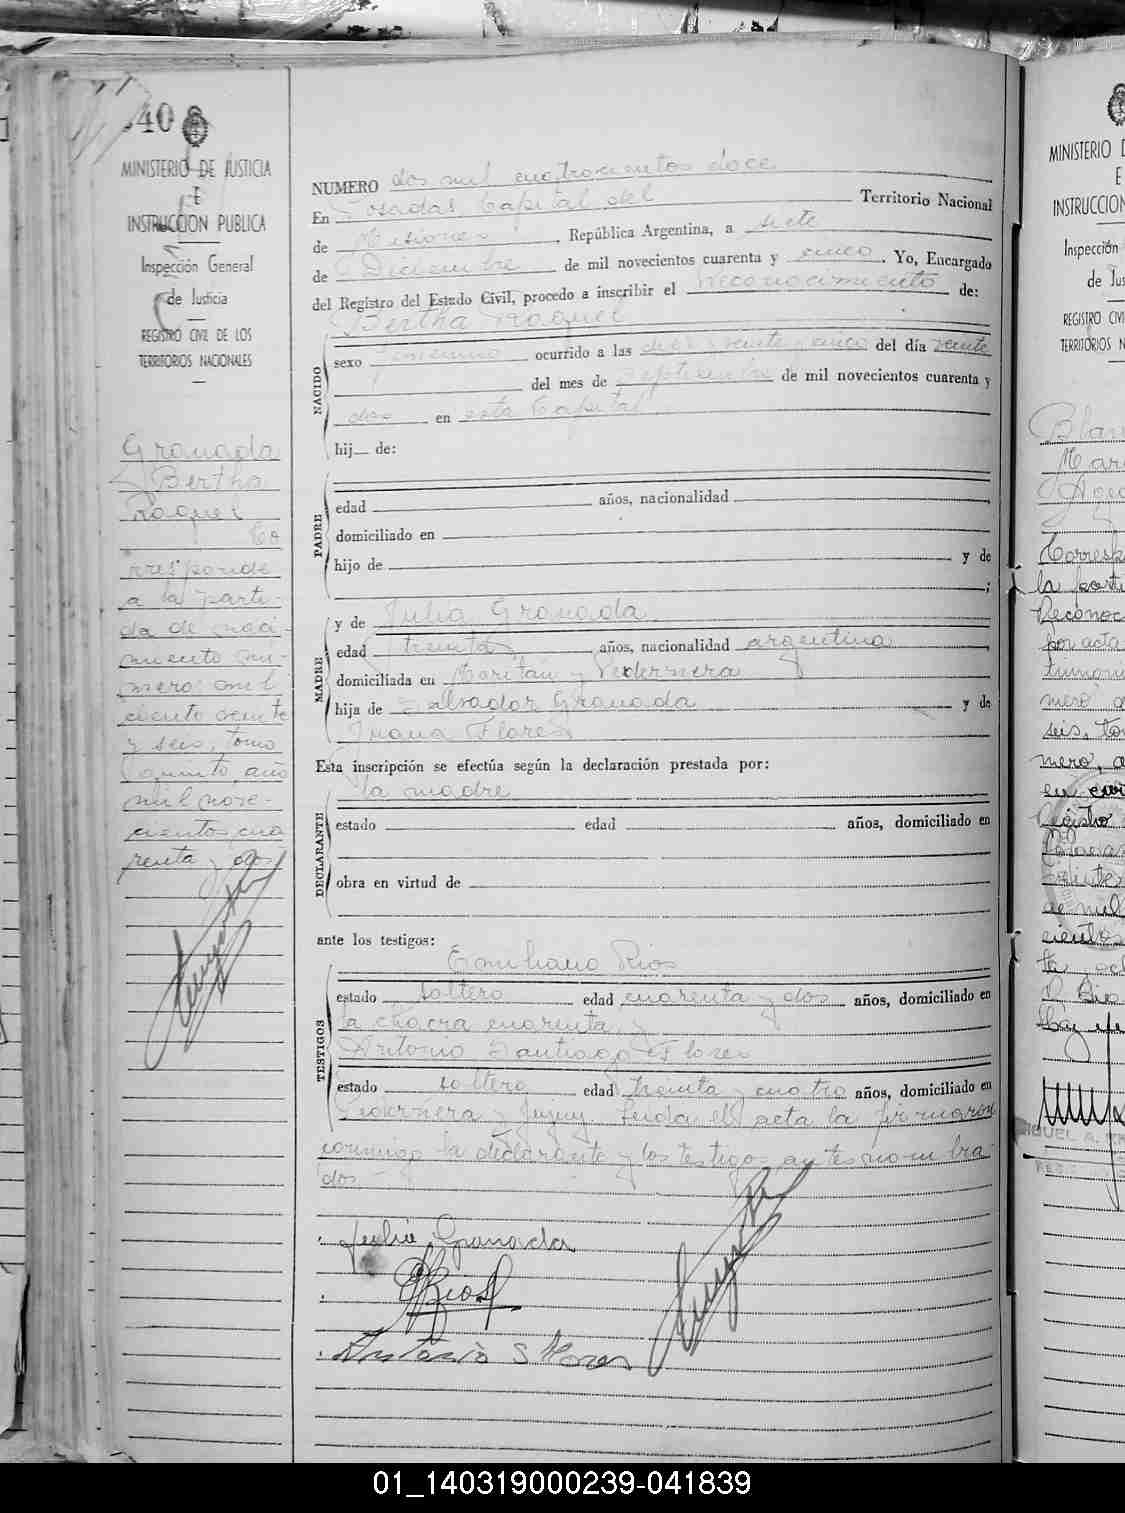 40
MINISTERIO DE JUSTICIA
E
INSTRUCCION PUBLICA
Inspección General
de Justicia
REGISTRO CIVIL DE LOS
TERRITORIOS NACIONALES
Granada
Bertha
Raquel
Co
rresponde
a la parti-
da de naci-
miento nú-
mero mil
ciento veinte
y seis, tomo
quinto, año
mil nove-
cientos cua
renta y dos
NUMERO dos mil cuatrocientos doce
En Posadas Capital del Territorio Nacional
de Misiones, República Argentina, a siete
de Diciembre de mil novecientos cuarenta y cinco. Yo, Encargado
del Registro del Estado Civil, procedo a inscribir el Reconocimiento de:
Bertha Raquel
NACIDO
sexo femenino ocurrido a las diez y veinte y cinco del día veinte
del mes de septiembre de mil novecientos cuarenta y
dos en esta Capital
hij de:
PADRE
edad años, nacionalidad
domiciliado en
hijo de y de
;
MADRE
y de Julia Granada
edad treinta años, nacionalidad argentina
domiciliada en y Pedernera
hija de Salvador Granada y de
Juana Flores
Esta inscripción se efectúa según la declaración prestada por:
la madre
DECLARANTE
estado edad años, domiciliado en
obra en virtud de
ante los testigos:
TESTIGOS
Emiliano Rios
estado soltero edad cuarenta y dos años, domiciliado en
la chacra cuarenta y
Antonio Santiago Flores
estado soltero edad treinta y cuatro años, domiciliado en
Pedernera y Jujuy. Leida el acta la firmaron
conmigo la declarante y los testigos antes nombra-
dos.
Julia Granada
E Rios
Antonio S Flores
MINISTERIO D
E
INSTRUCCION
Inspección
de Jus
REGISTRO CIV
TERRITORIOS N
01_140319000239-041839